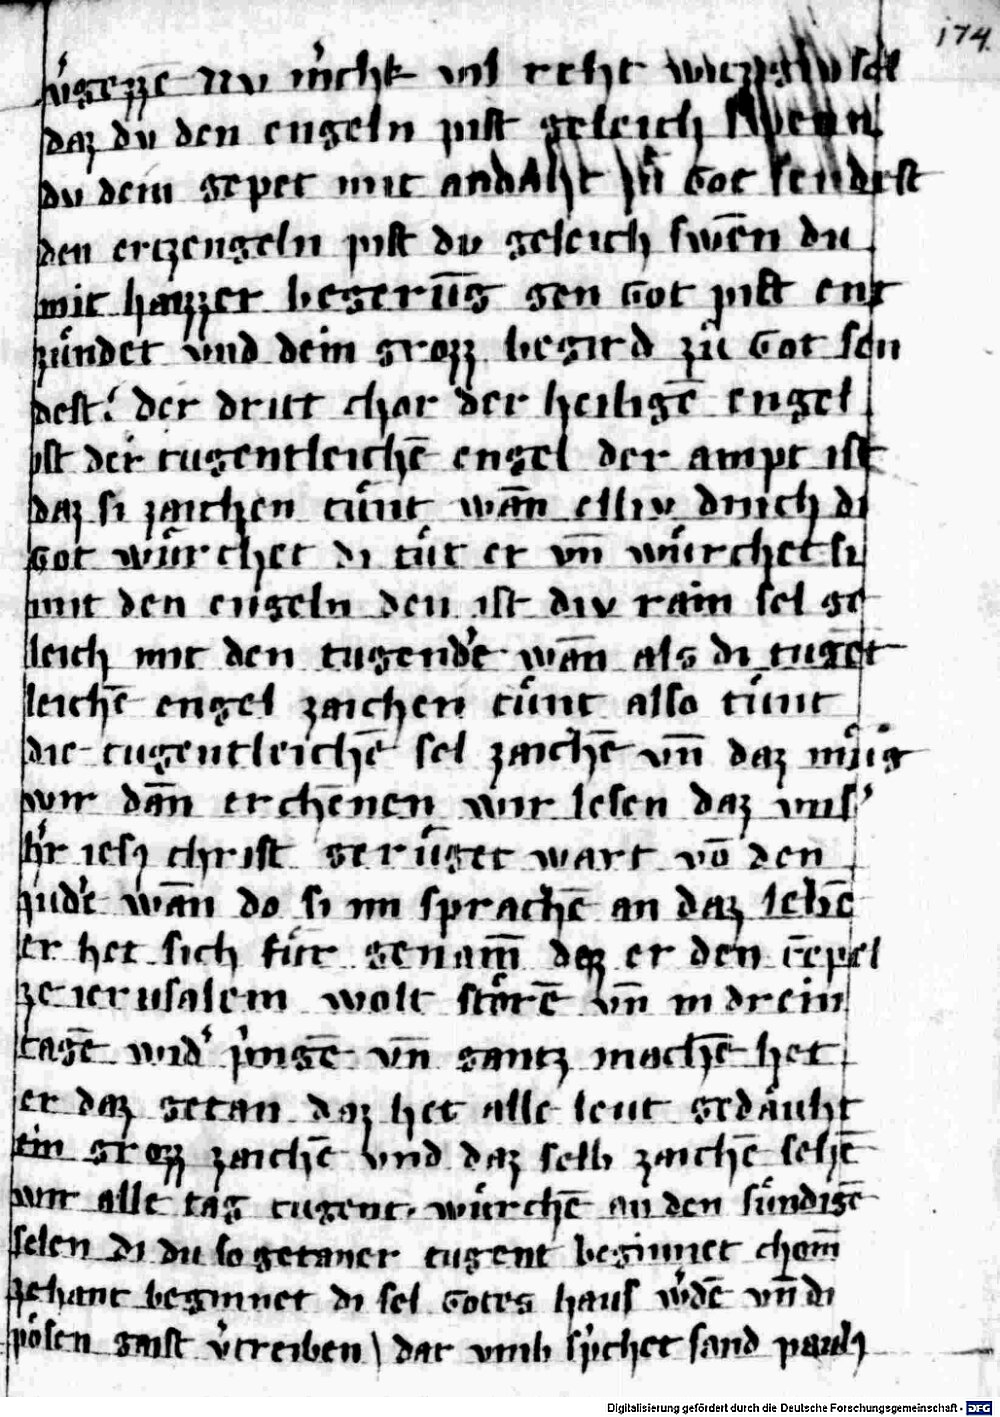 174.
v͛gezzē Nu m͛chk wil reht
daz du den engeln pist geleich swenn
du dein gepet mit andaht zů Got sendest
den ertzengeln pist du geleich swēn du
mit haizzer begerūg gen Got pist ent
zündet vnd dein grozz begird zů Got sen
dest. der dritt chor der heiligē engel
ist der tugentleichē engel der ampt ist
daz si zaichen tůnt wān elliv dinch di
Got würchet di tůt er vn̄ würchet si
mit den engeln den ist div rain sel ge
leich mit den tugend͛e wān als di tugēt
leichē engel zaichen tůnt also tůnt
die tugentleichē sel zaichē vn̄ daz müg
wir dān erchēnen wir lesen daz vns͛
h͛r iesꝯ christ gerůget wart vō den
jud͛e wān do si im sprachē an daz lebē
er het sich für genam̄ daz er den tēpel
ze ierusalem wolt störē vn̄ in drein
tagē wid͛ p͛ingē vn̄ gantz machē het
er daz getan daz het alle leut gedäuht
ein grozz zaichē vnd daz selb zaichē sehē
wir alle tag tugent würchē an den sündigē
selen di du so getaner tugent beginnet chom̄
zehant beginnet di sel Gotes haus w͛dē vn̄ di
pösen gaist v͛treiben dar vmb sp͛chet sand paulꝯ
Digitalisierung gefördert durch die Deutsche Forschungsgemeinschaft - DFG